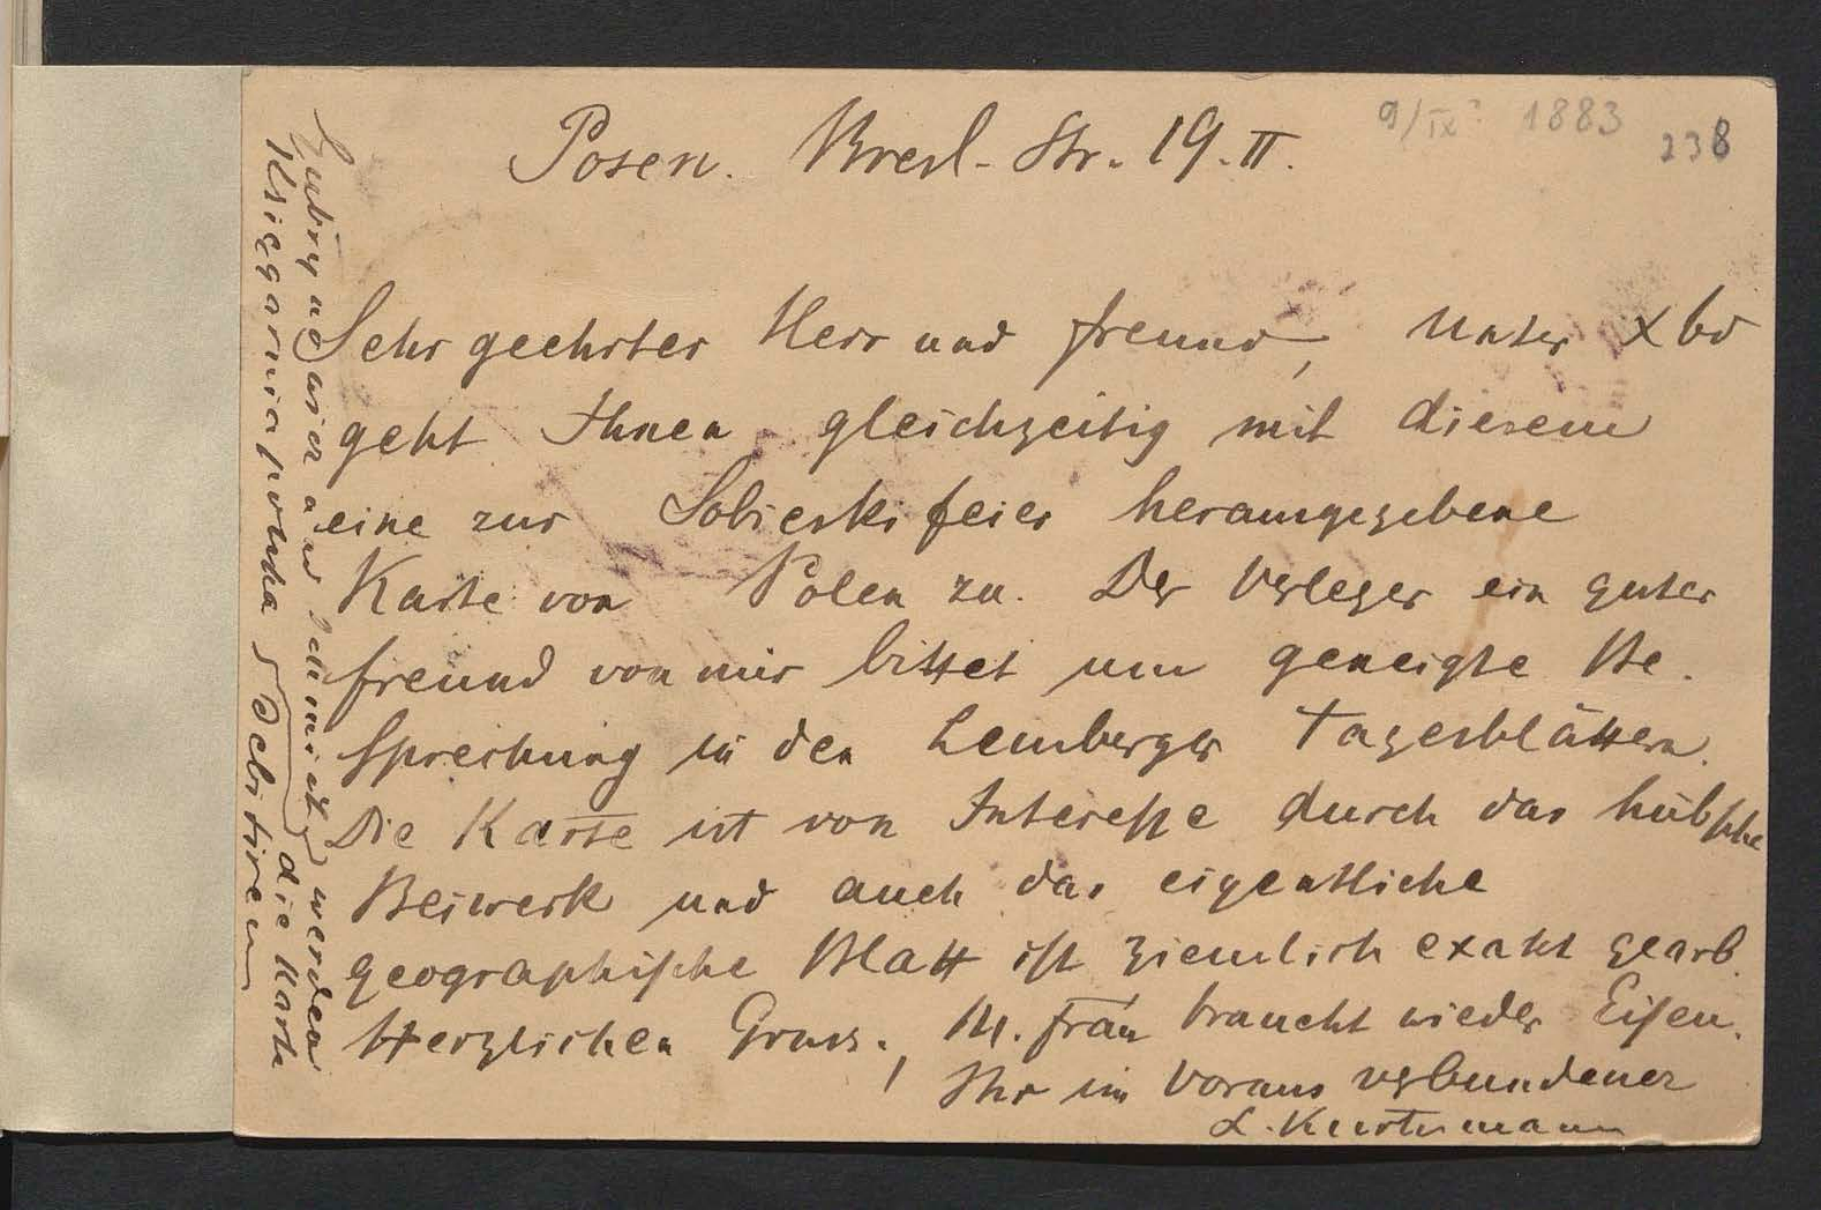 9/IX? 1883
238
Posen. Bresl. Str. 19. II.
Sehr geehrter Herr und Freund, Unter Xbd
geht Ihnen gleichzeitig mit diesem
eine zur Sobieskifeier herausgegebene
Karte von Polen zu. Der Verleger ein guter
Freund von mir bittet um geneigte Be-
sprechung in den Lemberger Tagesblättern.
Die Karte ist von Interesse durch das hübsche
Beiwerk und auch das eigentliche
geographische Blatt ist ziemlich exakt gearb.
Herzlichen Gruss., M. Frau braucht wieder Eisen.
Ihr im Voraus verbundener
L. Kurtzmann
Gubrynowicz and Schmidt werden
Księgarnia polska die Karte
debitiren